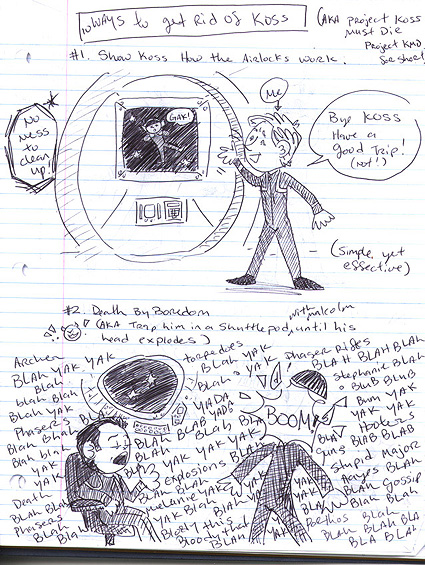 10 Ways to get Rid of Koss
(AKA Project Koss
Must Die
Project KMD
See sheet
#1. Show Koss How the Airlocks work.
No
mess
to
clean
up!
GAK!
Me
Bye Koss
Have a
good Trip!
(Not!)
(Simple, yet
effective)
#2. Death By Boredom
(AKA Trap him in a Shuttlepod, with malcolm until his
head explodes)
Archer
BLAH YAK YAK
Blah
blah blah
Blah YAK
Phasers BL
Blah blah
Blah YAK
YAK
YAK
Death
Blah Blah
Phasers
Blah
Bla
torpedoes
Blah YAK
Blah YAK
YADA
BLAH BLAB YADA
Blah BLA
YAK YAK YAK
explosions BLAH
Blah Blah
YAK
YAK Blah
Bloody this
Bloody that
BLAH
Phaser Rifles
BLAH BLAH BLAH
Stephanie BLAH
BLUB BLUB
Bum YAK
YAK YAK
Hookers
BLAB BLAB
guns
YAK YAK
Stupid Major
Hayes BLAH
BLAH Gossip
Blah Blah
Porthos Blah
BLAH BLAH BLA
BLA BLAH
BOOM
YAK